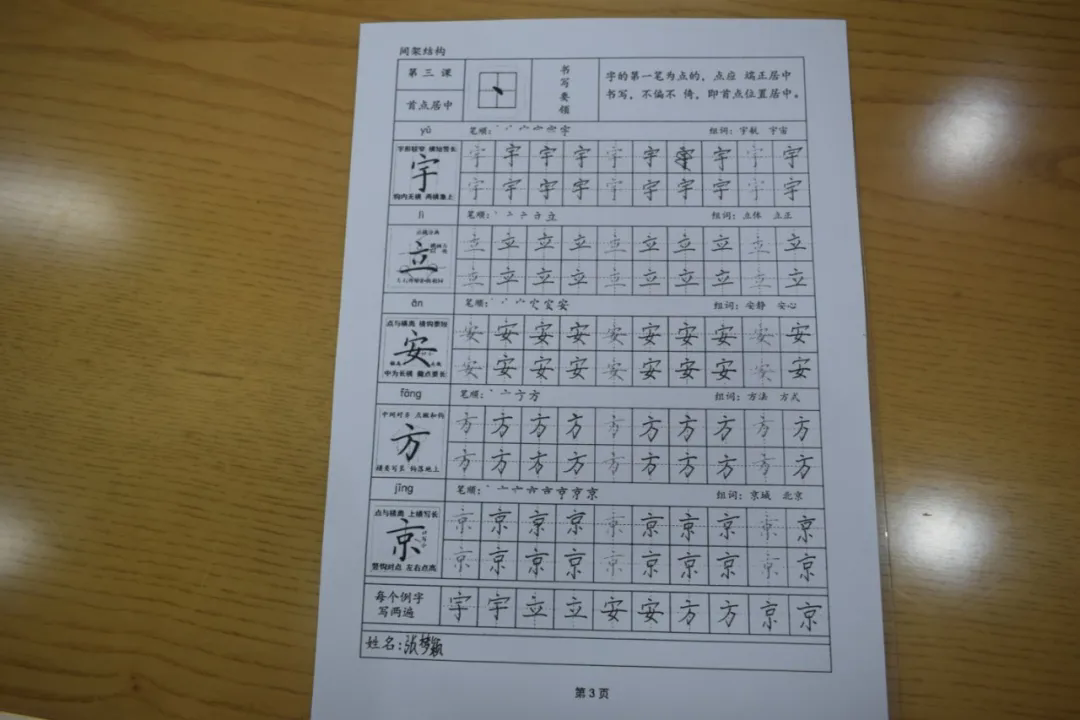 间架结构
第三课
首点居中
书写要领
字的第一笔为点的，点应 端正居中
书写，不偏不 倚，即首点位置居中。
yǔ 笔顺： 组词：宇航 宇宙
宇
宇 宇 宇 宇 宇 宇 宇 宇 宇 宇
宇 宇 宇 宇 宇 宇 宇 宇 宇 宇
lì 笔顺： 组词：立体 立正
立
立 立 立 立 立 立 立 立 立 立
立 立 立 立 立 立 立 立 立 立
ān 笔顺： 组词：安静 安心
点与横离
安
中为长横
安 安 安 安 安 安 安 安 安 安
安 安 安 安 安 安 安 安 安 安
fāng 笔顺： 组词：方法 方式
方
方 方 方 方 方 方 方 方 方 方
方 方 方 方 方 方 方 方 方 方
jīng 笔顺： 组词：京城 北京
点与横离 上横写长
京
竖钩对点 左右点离
京 京 京 京 京 京 京 京 京 京
京 京 京 京 京 京 京 京 京 京
每个例字
写两遍
宇 宇 立 立 安 安 方 方 京 京
姓名：张梦颖
第 3 页